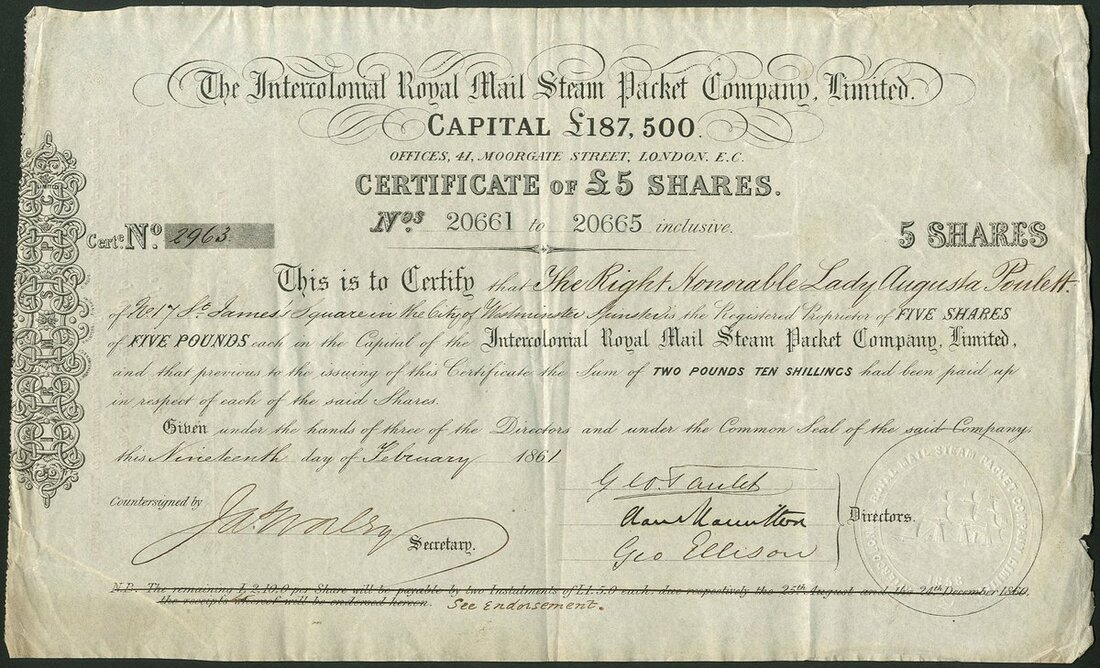 The Intercolonial Royal Mail Steam Packet Company, Limited.
CAPITAL £187,500.
OFFICES, 41, MOORGATE STREET, LONDON. E.C.
CERTIFICATE OF £5 SHARES.
Nos 20661 to 20665 inclusive.
Certe. No. 2963
5 SHARES
This is to Certify that The Right Honorable Lady Augusta Poulett
of No 17 St. James' Square in the City of Westminster is the Registered Proprietor of FIVE SHARES
of FIVE POUNDS each in the Capital of the Intercolonial Royal Mail Steam Packet Company, Limited,
and that previous to the issuing of this Certificate the Sum of TWO POUNDS TEN SHILLINGS had been paid up
in respect of each of the said Shares.
Given under the hands of three of the Directors and under the Common Seal of the said Company,
this Nineteenth day of February 1861
Countersigned by
Secretary.
Geo
Geo Ellison
Directors.
ROYAL MAIL STEAM PACKET COMPANY LIMITED
1858
N.B. The remaining £2.10.0 per Share will be payable by two Instalments of £1.5.0 each, due respectively the 25th August and the 24th December 1860,
the receipts thereof will be endorsed hereon. See Endorsement.